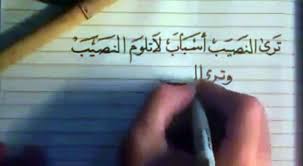 تَرىَ النَصِيبْ أَسْبَابَ لاَتلُومَ النَصِيَبْ
وترى ال